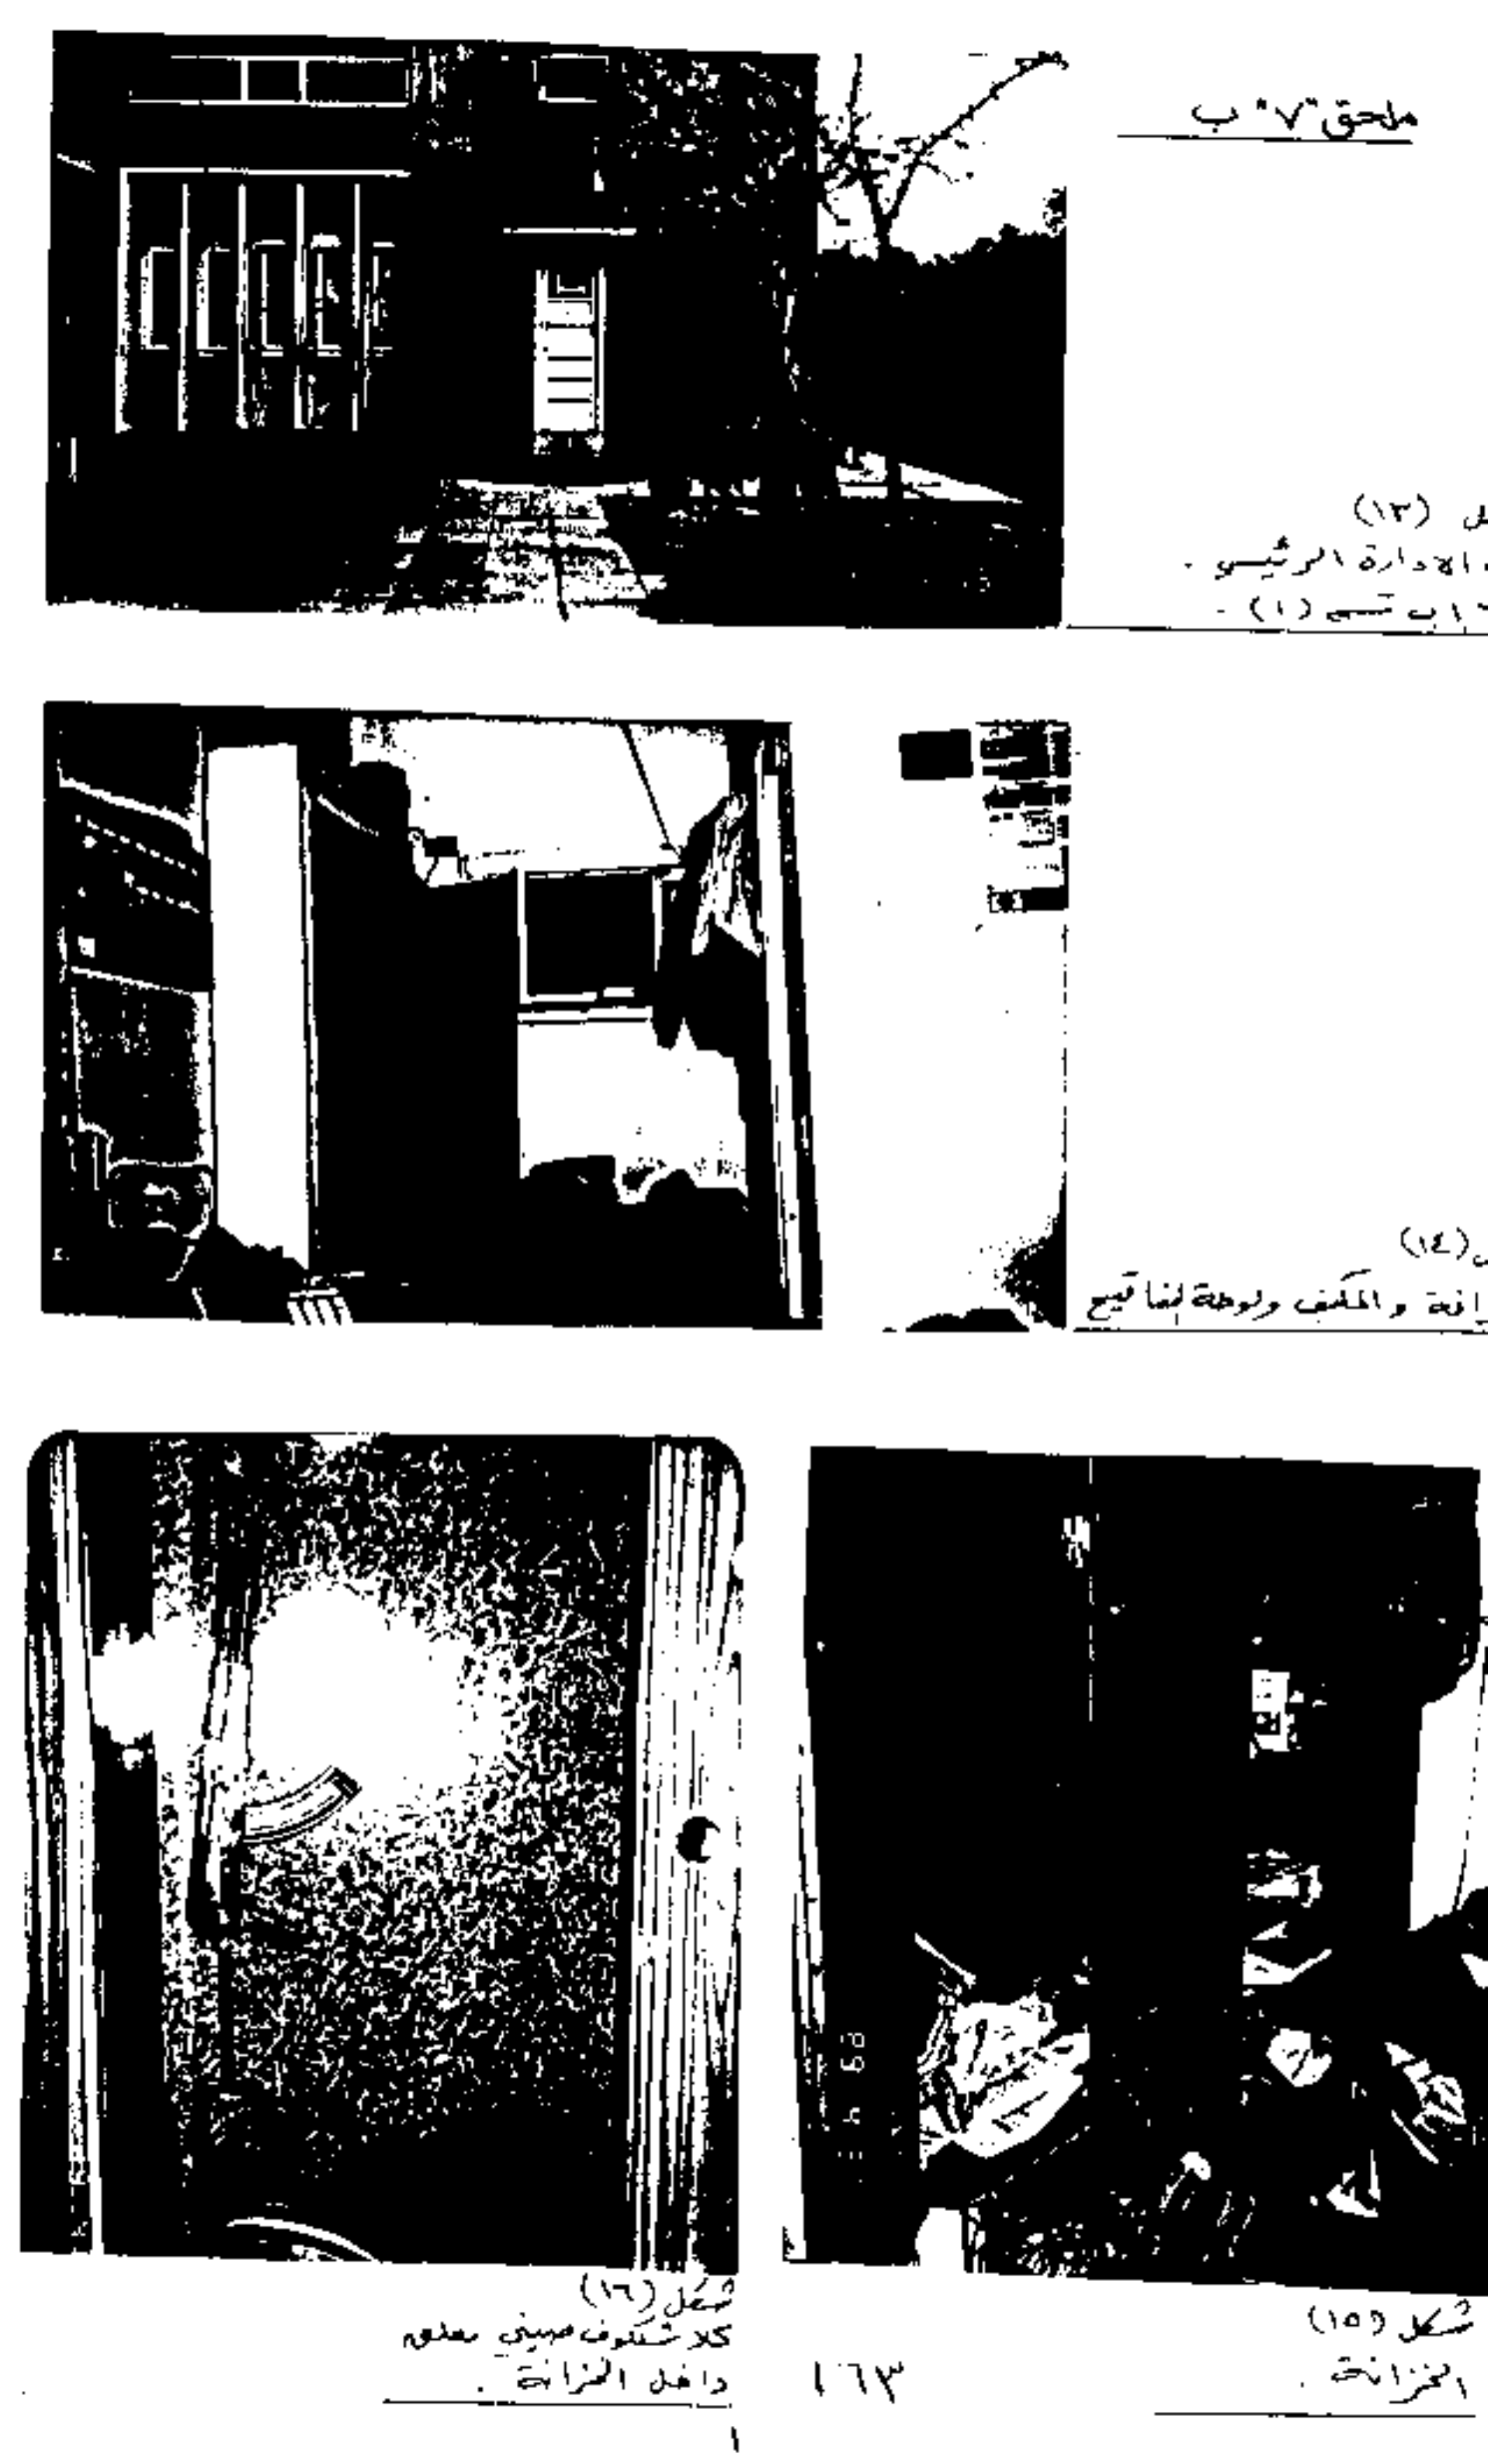 ملحق "٧" ب
(١٣)
الادارة الرئيسي .
(١) .
(١٤)
والمكتب ولوحة المفاتيح
شكل (١٥)
الخزانة .
شكل (١٦)
كلاشنكوف صيني معلق
داخل الخزانة .
١٦٣